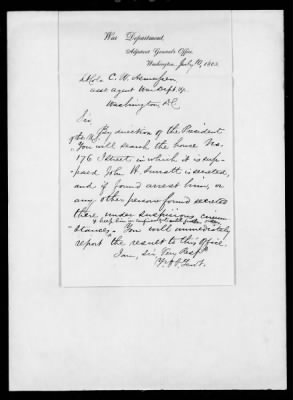 War Department,
Adjutant General's Office,
Washington, July 10, 1865.
C. W.
asst agent War Dept &c
Washington, DC
Sir
By direction of the President
"You will search the house No.
176 I street in which it is sup-
posed John H. Surratt is secreted,
and if found arrest him, or
any other person found secreted
there under suspicious circum
& keep him in custody until further orders
stances." You will immediately
report the result to this office.
I am, Sir, Very Respy